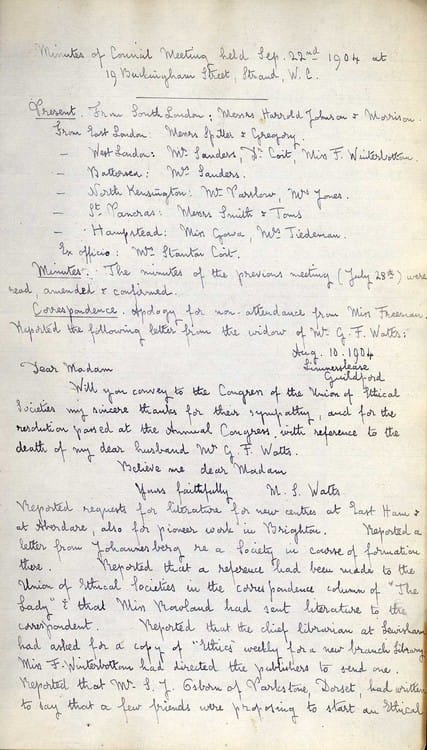 Minutes of Council Meeting held Sep. 22nd 1904 at
19 Buckingham Street, Strand, W.C.
Present. From South London: Messrs Harrold Johnson & Morrison.
From East London: Messrs Spiller & Gregory.
– West London: Mr Sanders, Dr Coit, Miss F. Winterbottom.
– Battersea: Mrs Sanders.
– North Kensington: Mr Parslow, Mrs Jones.
– St Pancras: Messrs Smith & Toms
– Hampstead: Miss Gowa, Mrs Tiedeman.
Ex officio: Mrs Stanton Coit.
Minutes. The minutes of the previous meeting (July 28th) were
read, amended & confirmed.
Correspondence. Apology for non-attendance from Miss Freeman.
Reported the following letter from the widow of Mr. G. F. Watts:
Aug. 10. 1904
Limnerslease
Guildford
Dear Madam
Will you convey to the Congress of the Union of Ethical
Societies my sincere thanks for their sympathy, and for the
resolution passed at the Annual Congress, with reference to the
death of my dear husband Mr G. F. Watts.
Believe me dear Madam
Yours faithfully M. S. Watts.
Reported requests for literature for new centres at East Ham &
at Aberdare, also for pioneer work in Brighton. Reported a
letter from Johannesberg re a Society in course of formation
there. Reported that a reference had been made to the
Union of Ethical Societies in the correspondence column of "The
Lady" & that Miss Rowland had sent literature to the
correspondent. Reported that the chief librarian at Lewisham
had asked for a copy of "Ethics" weekly for a new branch Library
Miss F. Winterbottom had directed the publishers to send one.
Reported that Mr S. J. Osborn of Parkstone, Dorset, had written
to say that a few friends were proposing to start an Ethical